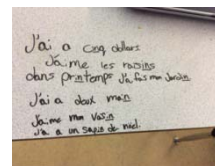 J'ai a cinq dollars
J'aime les raisins
dans printemps J'a fais mon Jardin.
J'ai a deux main
J'aime mon Vasin
J'a a un sapin de niel.